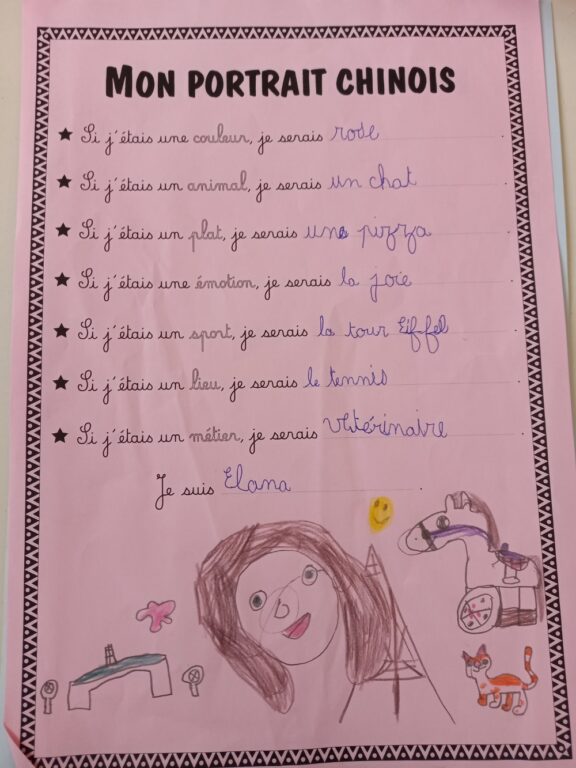 MON PORTRAIT CHINOIS
★ Si j'étais une couleur, je serais rose.
★ Si j'étais un animal, je serais un chat.
★ Si j'étais un plat, je serais une pizza.
★ Si j'étais une émotion, je serais la joie.
★ Si j'étais un sport, je serais la tour Eiffel.
★ Si j'étais un lieu, je serais le tennis.
★ Si j'étais un métier, je serais Vétérinaire.
Je suis Elana.